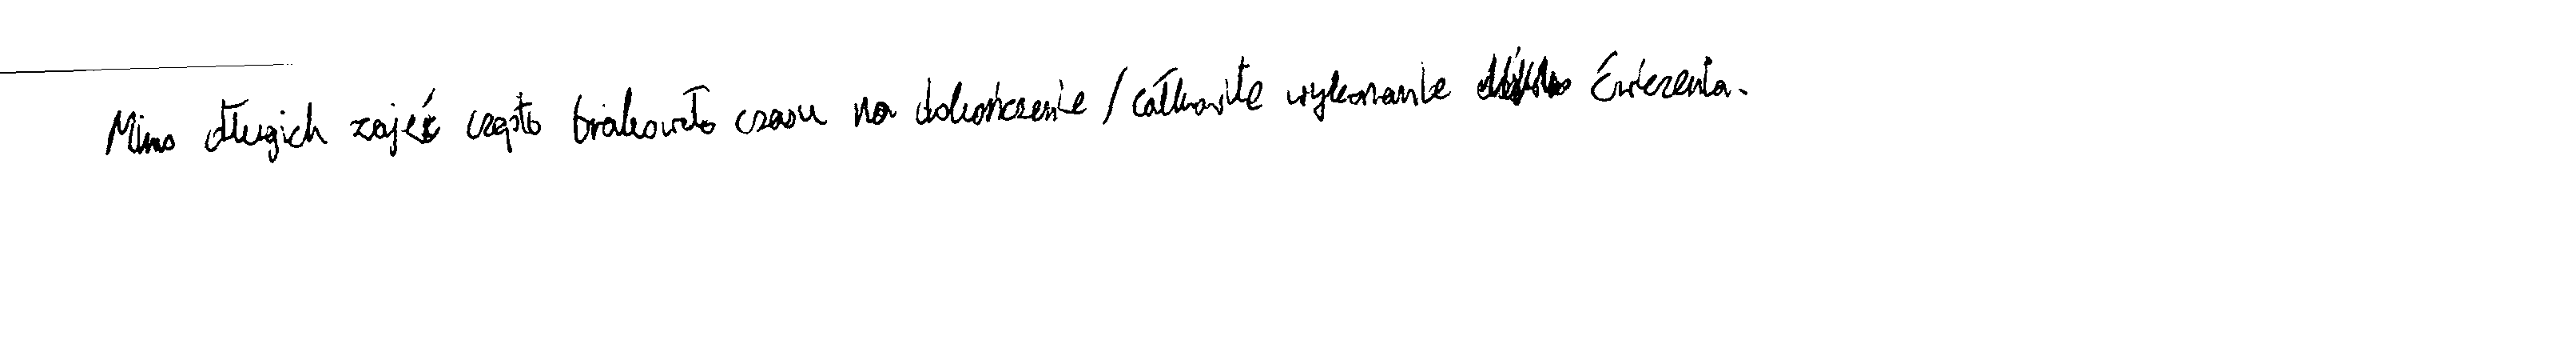 Mimo długich zajęć często brakowało czasu na dokończenie / całkowite wykonanie ćwiczenia.